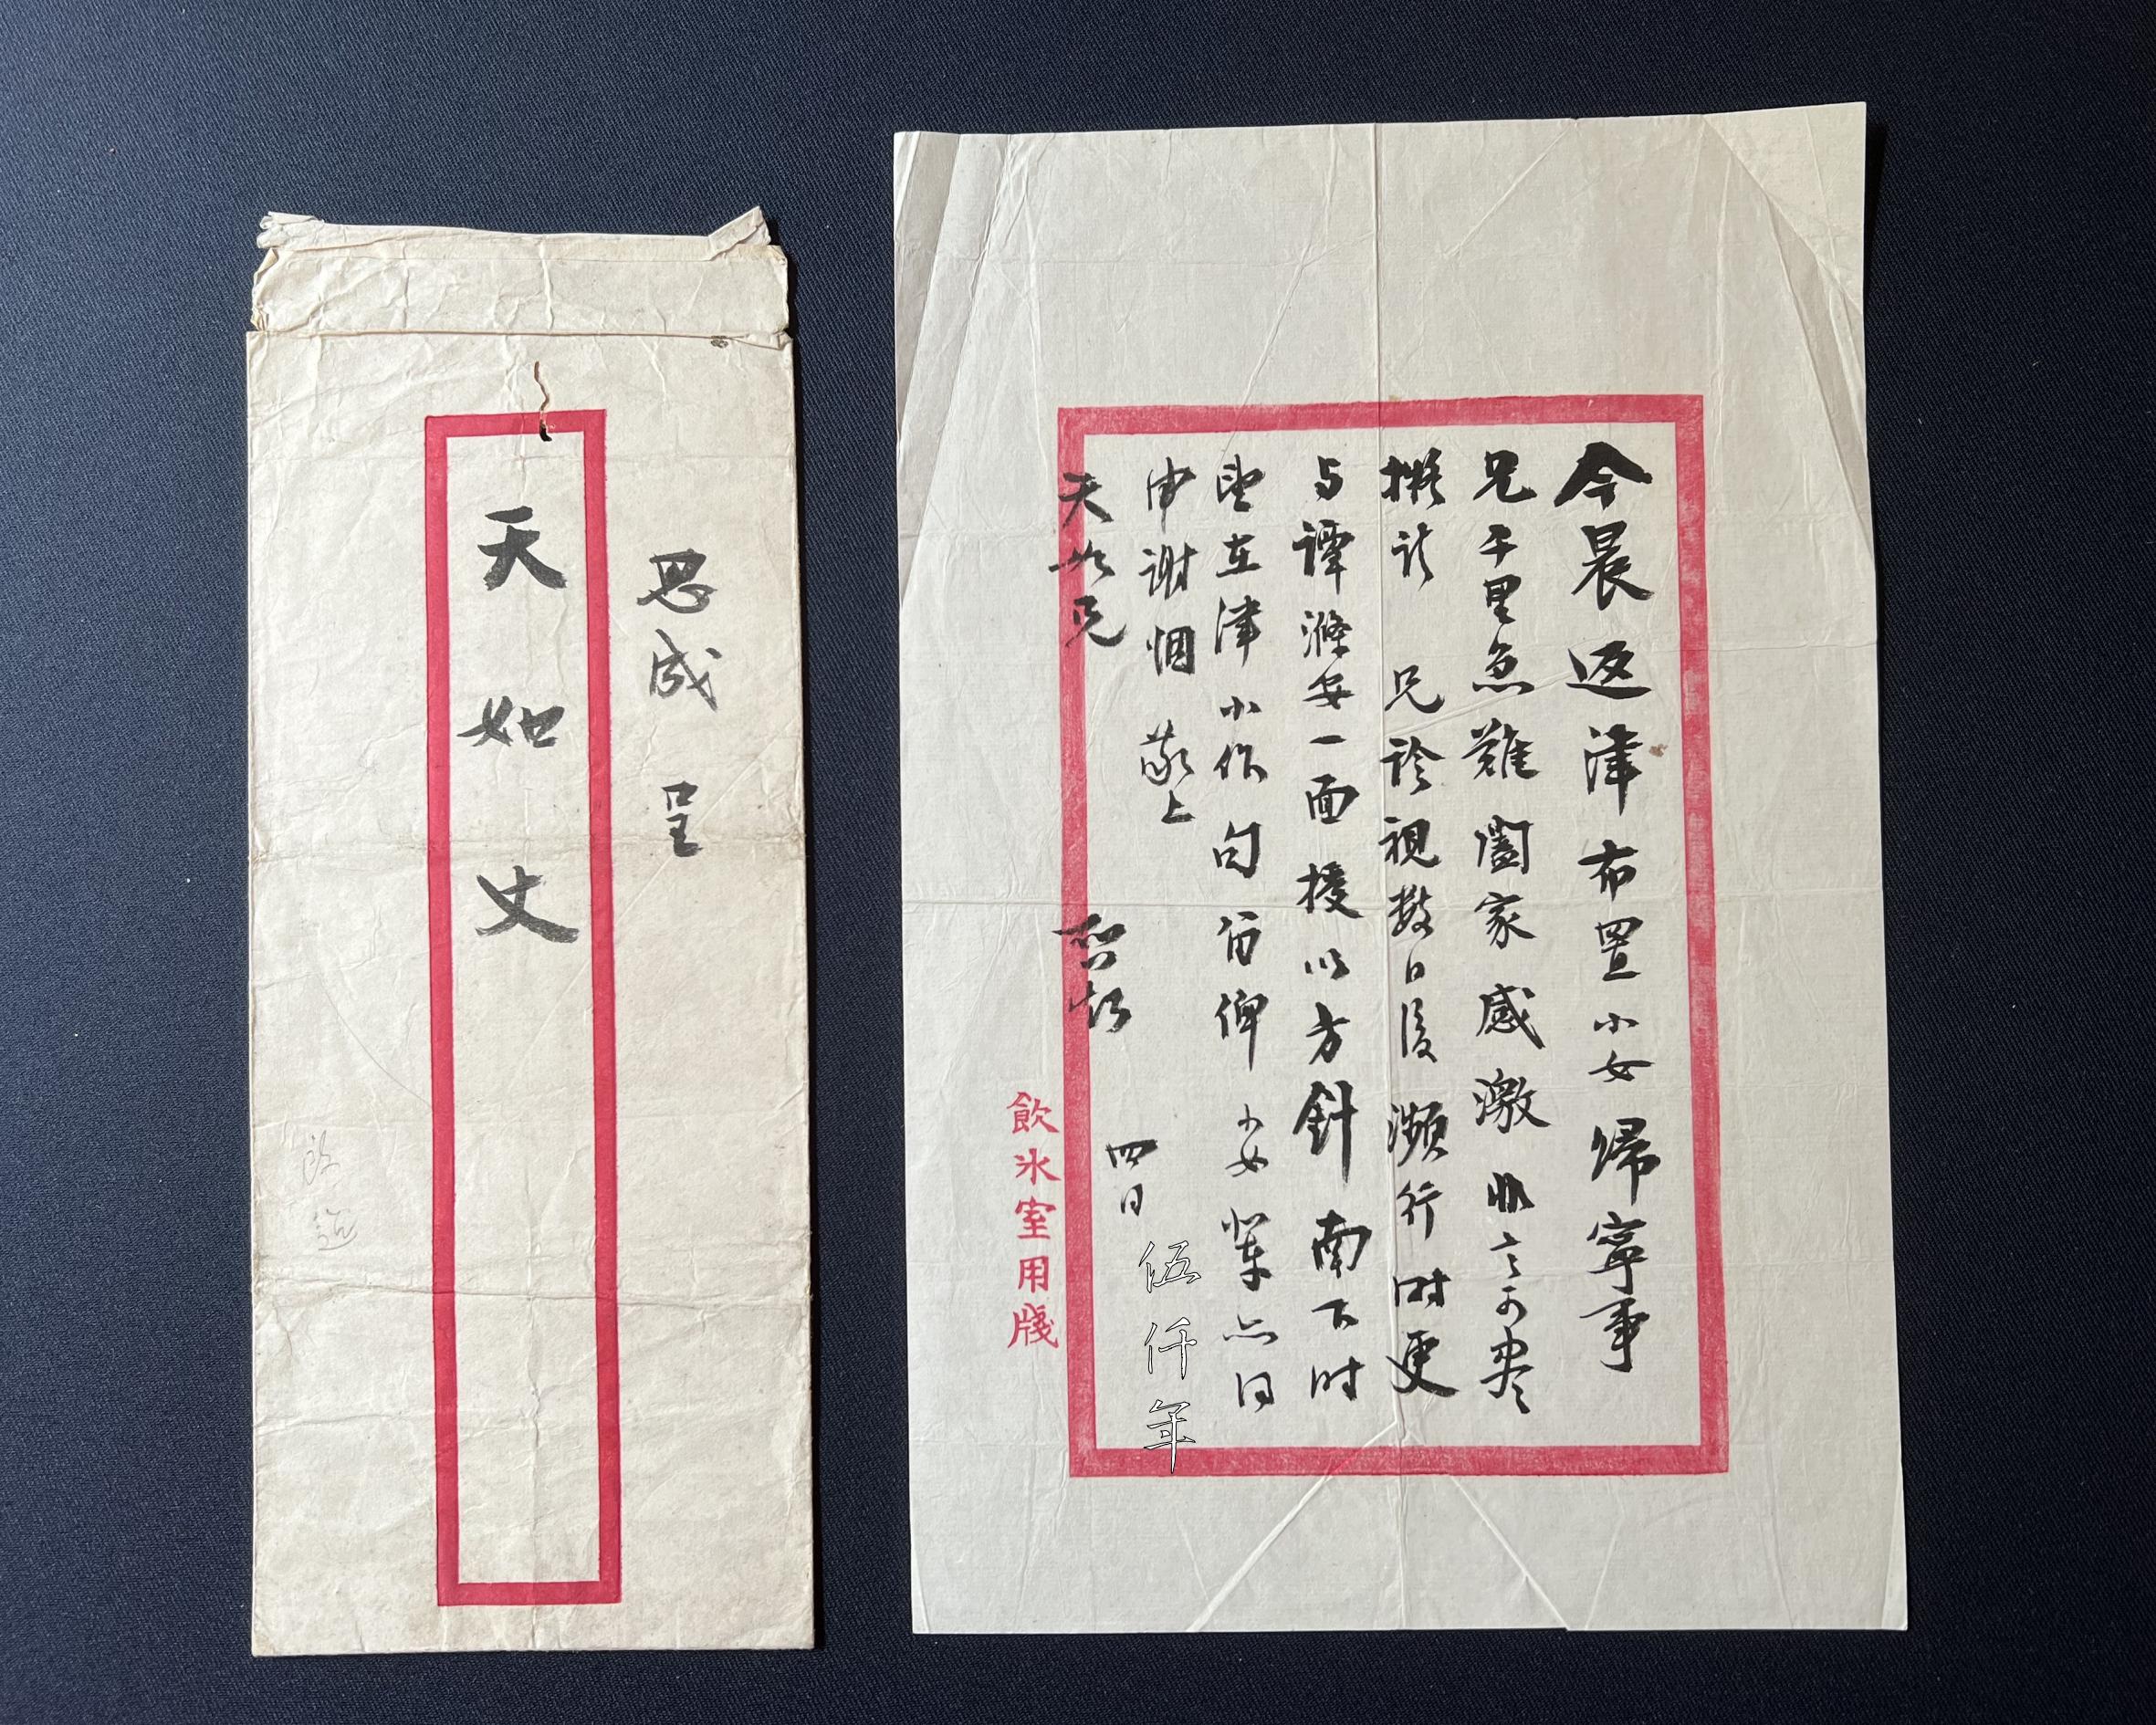 思成 呈
天如丈
啟超
今晨返津布置小女歸寧事
兄千里急難闔家感激非言可盡
擬請 兄診視數日後瀕行時更
与譚滌安一面授以方針南下时
盟在津小作勾留俾小女輩亦日
申謝悃 敬上
天如兄 啟超
四日
伍仟年
飲氷室用牋